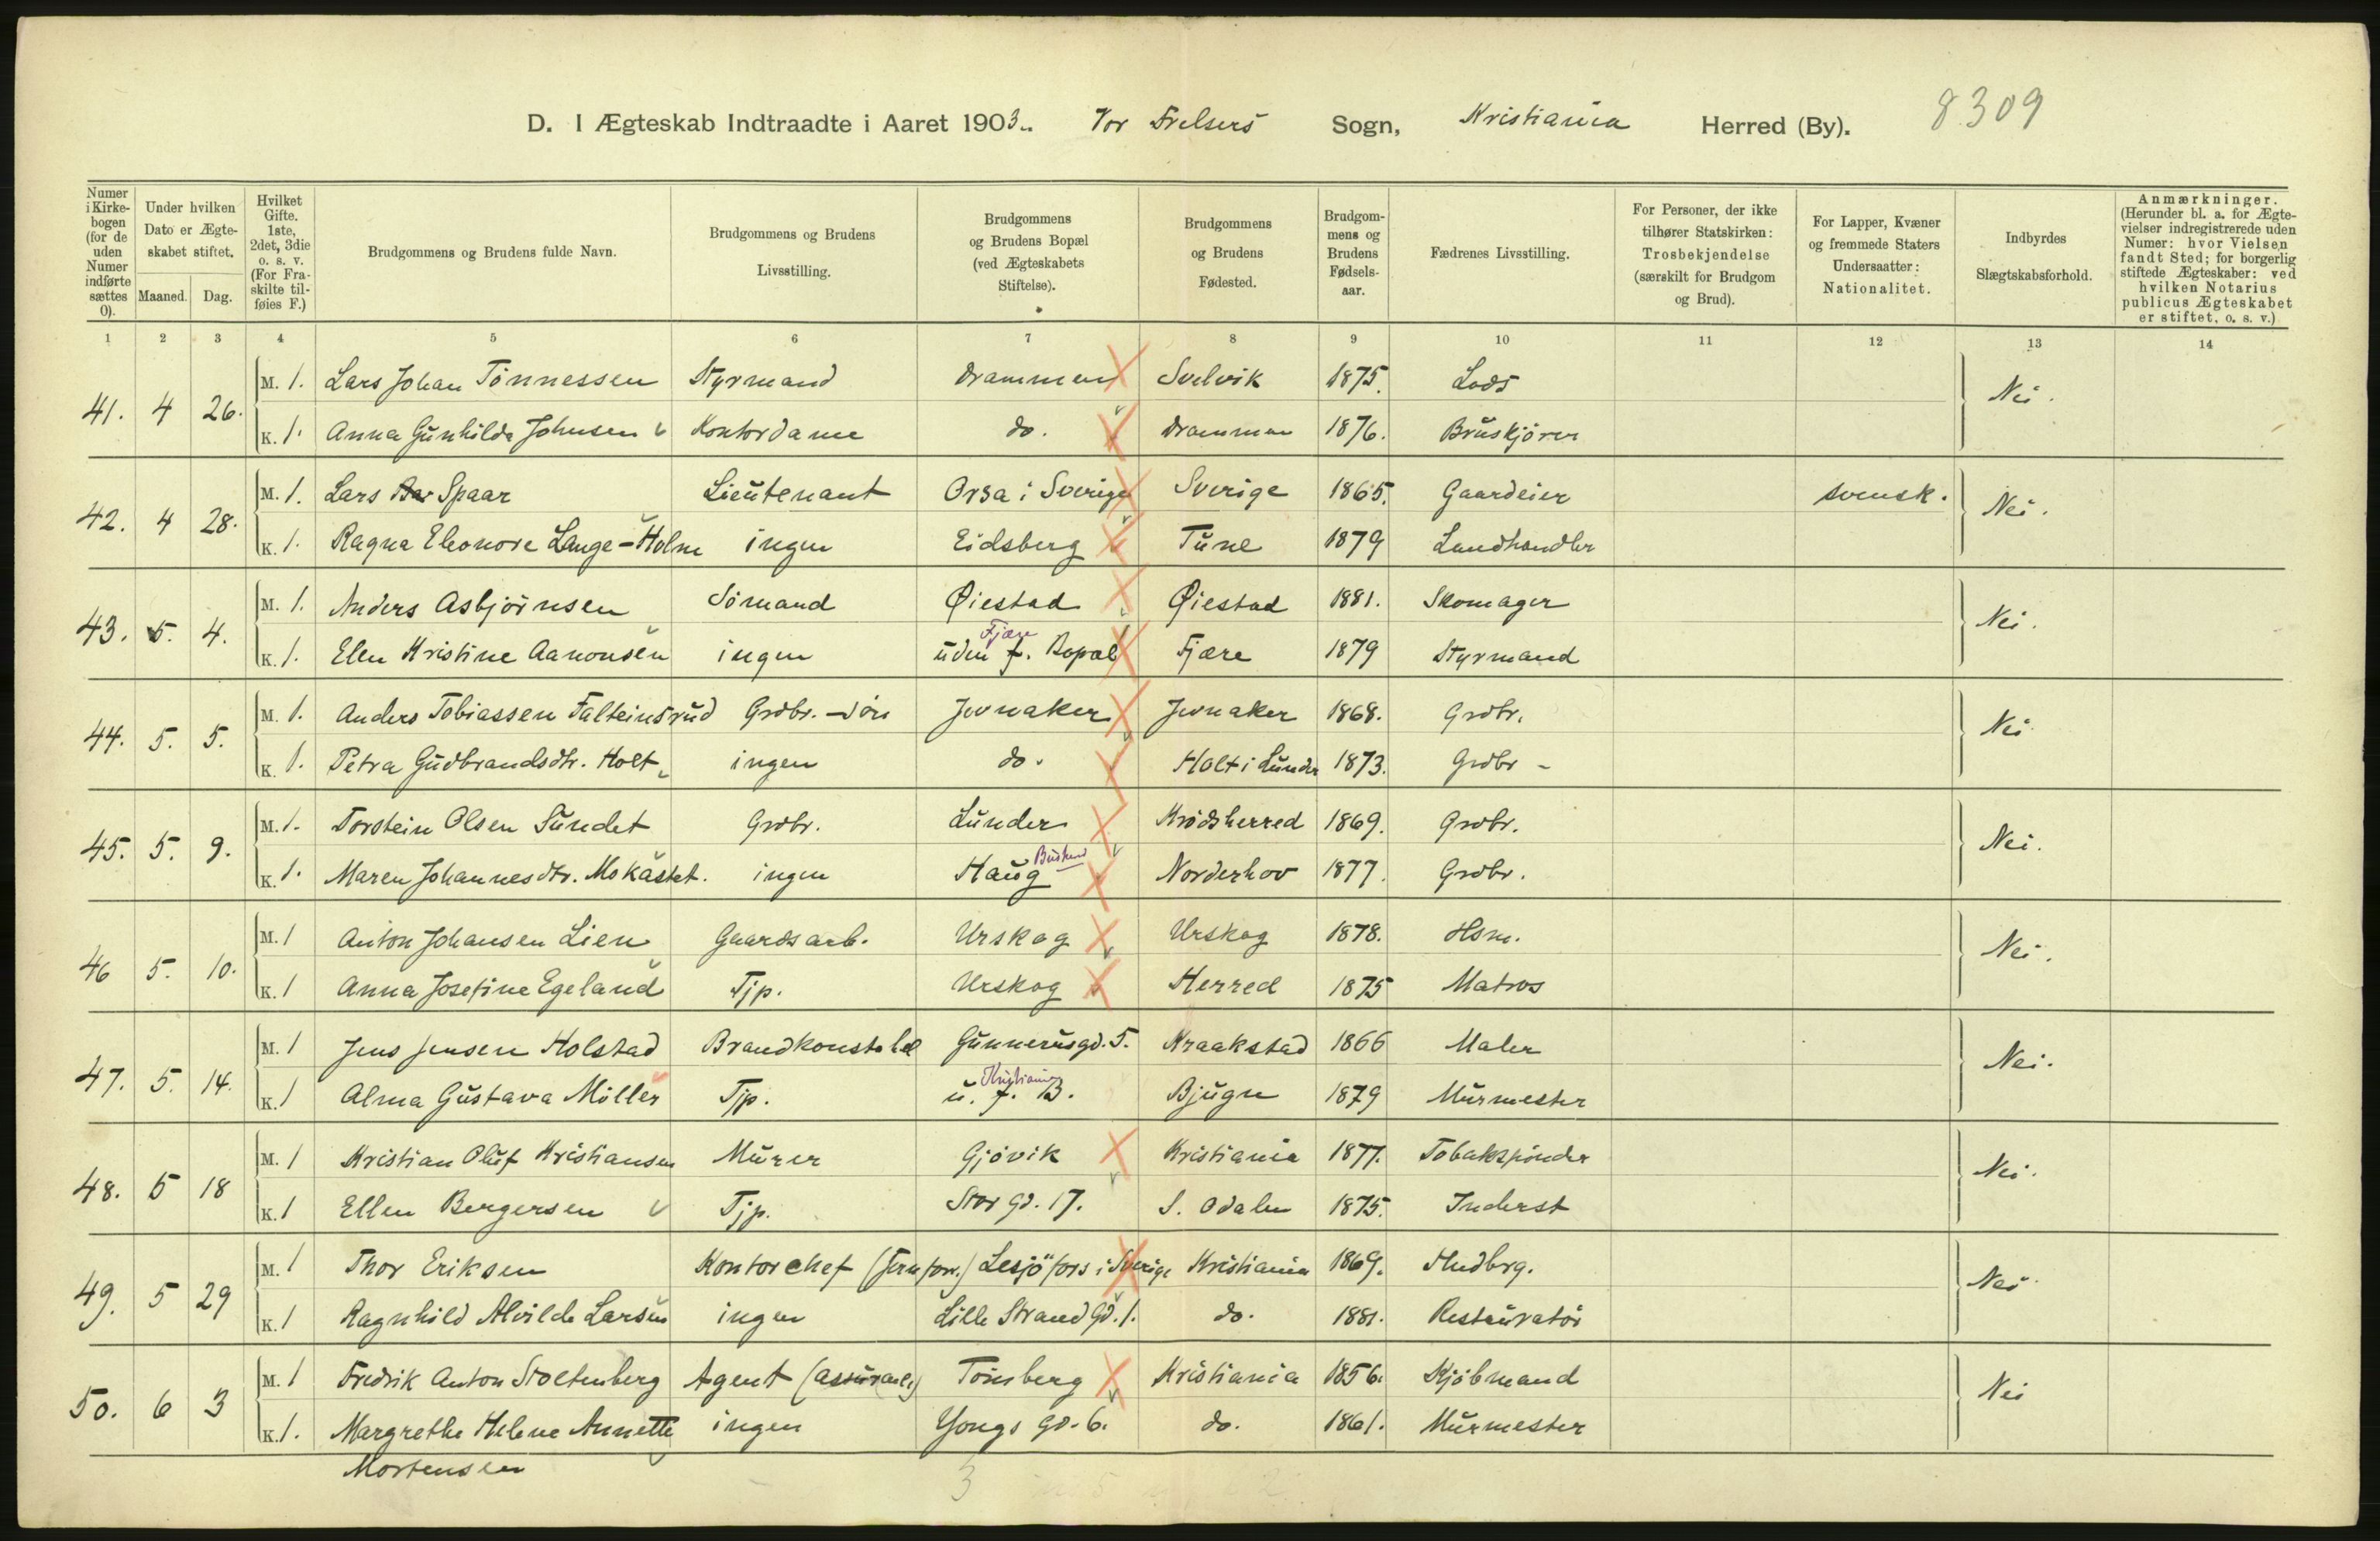 D. I Ægteskab Indtraadte i Aaret 1903. Vor Frelsers Sogn, Kristiania Herred (By). 8309
Numer i Kirkebogen (for de uden Numer indførte sættes 0). | Under hvilken Dato er Ægteskabet stiftet. Maaned. Dag. | Hvilket Gifte. 1ste, 2det, 3die o. s. v. (For Fraskilte tilføies F.) | Brudgommens og Brudens fulde Navn. | Brudgommens og Brudens Livsstilling. | Brudgommens og Brudens Bopæl (ved Ægteskabets Stiftelse). | Brudgommens og Brudens Fødested. | Brudgommens og Brudens Fødselsaar. | Fædrenes Livsstilling. | For Personer, der ikke tilhører Statskirken: Trosbekjendelse (særskilt for Brudgom og Brud). | For Lapper, Kvæner og fremmede Staters Undersaatter: Nationalitet. | Indbyrdes Slægtskabsforhold. | Anmærkninger. (Herunder bl. a. for Ægtevielser indregistrerede uden Numer: hvor Vielsen fandt Sted; for borgerlig stiftede Ægteskaber: ved hvilken Notarius publicus Ægteskabet er stiftet, o. s. v.)
1 2 3 4 5 6 7 8 9 10 11 12 13 14
41. 4 26. M. 1. Lars Johan Tönnessen Styrmand Drammen Svelvik 1875. Lods Nei.
K. 1. Anna Gunhilda Johnsen Kontordame do. Drammen 1876. Bruskjörer
42. 4 28. M. 1. Lars Spaar Lieutenant Orsa i Sverige Sverige 1865. Gaardeier svensk. Nei.
K. 1. Ragna Eleonore Lange-Holm ingen Eidsberg Tune 1879 Landhandler
43. 5. 4. M. 1. Anders Asbjörnsen Sömand Øiestad Øiestad 1881. Skomager Nei.
K. 1. Ellen Kristine Aanonsen ingen uden f. Bopæl Fjære Fjære 1879 Styrmand
44. 5. 5. M. 1. Anders Tobiassen Falteinsrud Grdbr.-sön Jevnaker Jevnaker 1868. Grdbr. Nei.
K. 1. Petra Gudbrandsdtr. Holt ingen do. Holt i Lunder 1873. Grdbr -
45. 5. 9. M. 1. Torstein Olsen Sundet Grdbr. Lunder Krödsherred 1869. Grdbr. Nei.
K. 1. Maren Johannesdtr. Mokastet. ingen Haug Buskerud Norderhov 1877. Grdbr.
46 5. 10. M. 1 Anton Johansen Lien Gaardsarb. Urskog Urskog 1878. Hsm. Nei.
K. 1 Anna Josefine Egeland Tjp. Urskog Herred 1875 Matros
47. 5. 14. M. 1 Jens Jensen Holstad Brandkonstabel Gunnerusgd. 5. Kraakstad 1866 Maler Nei.
K. 1 Alma Gustava Möller Tjp. u. f. B. Kristiania Bjugn 1879 Murmester
48. 5 18 M. 1 Kristian Oluf Kristiansen Murer Gjövik Kristiania 1877. Tobakspinder Nei.
K. 1 Ellen Bergersen Tjp. Stor gd. 17. S. Odalen 1875. Inderst
49. 5 29 M. 1 Thor Eriksen Kontorchef (Jernforr.) Lesjöfors i Sverige Kristiania 1869. Hndbrg. Nei.
K. 1 Ragnhild Alvilde Larsen ingen Lille Strand Gd. 1. do. 1881. Restauratör
50. 6 3 M. 1 Fredrik Anton Stoltenberg Agent (assurance) Tönsberg Kristiania 1856. Kjöbmand Nei
K. 1. Margrethe Helene Annette ingen Yongs gd. 6. do. 1861. Murmester
Mortensen
3